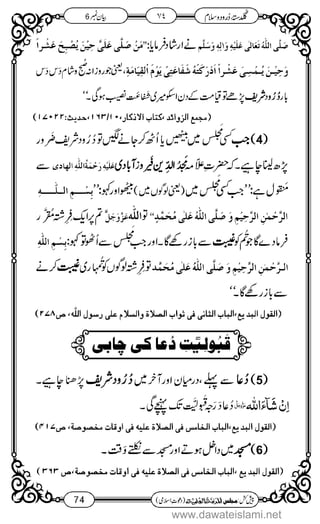 گلدستۂ درود و سلام ٧٤ بیان نمبر 6
صَلَّی اللّٰہُ تَعَالٰی عَلَیْہِ وَاٰلِہٖ وَسَلَّم نے ارشاد فرمایا: ’’مَنْ صَلَّی عَلَیَّ حِیْنَ یُصْبِحُ عَشْراً
وَحِیْنَ یُمْسِی عَشْراً اَدْرَکَتْہُ شَفَاعَتِیْ یَوْمَ الْقِیَامَۃِ، یعنی جو روزانہ صبح و شام دس دس
بار دُرُود شریف پڑھے تو قیامت کے دن اسکو میری شفاعت نصیب ہوگی۔‘‘
(مجمع الزوائد ،کتاب الاذکار، ١٠/١٦٣،حدیث:١٧٠٢٢)
(4) جب کسی مجلس میں بیٹھیں یا اُٹھ کر جانے لگیں تو دُرُود شریف ضرور
پڑھ لینا چاہئے کہ حضرتِ علامہ مُجدُ الدِّین فیروز آبادی عَلَیْہِ رَحْمَۃُ اللّٰہِ الھادی سے
مَنقُول ہے: ’’جب کسی مجلس میں (یعنی لوگوں میں) بیٹھو اور کہو: ’’بِسْمِ اللّٰہِ
الرَّحْمٰنِ الرَّحِیْمِ وَ صَلَّی اللّٰہُ عَلٰی مُحَمَّدٍ‘‘ تو اللّٰہ عَزَّوَجَلَّ تم پر ایک فرِشتہ مُقرَّر
فرمادے گا جو تم کو غیبت سے باز رکھے گا۔ اور جب مجلس سے اُٹھو تو کہو: بِسْمِ اللّٰہِ
الرَّحْمٰنِ الرَّحِیْمِ وَ صَلَّی اللّٰہُ عَلٰی مُحَمَّد تو فرِشتہ لوگوں کو تمہاری غیبت کرنے
سے باز رکھے گا۔‘‘
(القول البدیع،الباب الثانی فی ثواب الصلاۃ والسلام علی رسول اللّٰہ، ص ٢٧٨)
قَبُولِیَّتِ دُعا کی چابی
(5) دُعا سے پہلے ،درمیان، اور آخر میں دُرُود شریف پڑھنا چاہیے۔
اِنْ شَآءَاللّٰہ عزوجل دُعا دَرَجۂ قَبُولیَّت تک پہنچے گی۔
(القول البدیع،الباب الخامس فی الصلاۃ علیہ فی اوقات مخصوصۃ،ص٤١٧)
(6) مسجد میں داخل ہوتے اور مسجد سے نکلتے وَقت۔
(القول البدیع،الباب الخامس فی الصلاۃ علیہ فی اوقات مخصوصۃ،ص ٣٦٣)
74
www.dawateislami.net